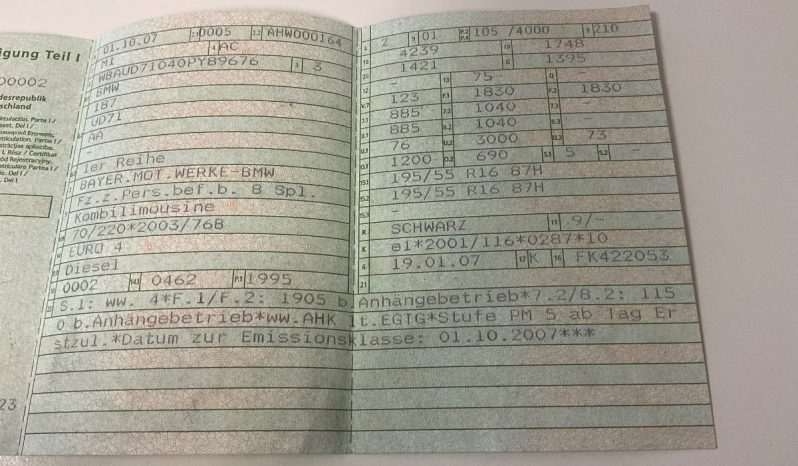 igung Teil I
00002
desrepublik
schland
23
01.10.07 2.1 0005 2.2 AHW000164
M1 4 AC
WBAUD71040PY89676 3 3
BMW
187
UD71
AA
1er Reihe
BAYER.MOT.WERKE-BMW
Fz.z.Pers.bef.b. 8 Spl.
Kombilimousine
70/220*2003/76B
EURO 4
Diesel
0002 14.1 0462 P.1 1995
L 2 9 01 P.2 P.4 105 /4000 T 210
18 4239 19 1748
20 1421 G 1395
12 - 13 75 Q -
V.7 123 F.1 1830 F.2 1830
7.1 885 7.2 1040 7.3 -
8.1 885 8.2 1040 8.3 -
U.1 76 U.2 3000 U.3 73
O.1 1200 O.2 690 S.1 5 S.2 -
15.1 195/55 R16 87H
15.2 195/55 R16 87H
15.3 -
R SCHWARZ 11 9/-
K e1*2001/116*0287*10
6 19.01.07 17 K 16 FK422053
21
S.1: ww. 4*F.1/F.2: 1905 b.Anhängebetrieb*7.2/8.2: 115
0 b.Anhängebetrieb*ww.AHK lt.EGTG*Stufe PM 5 ab Tag Er
stzul.*Datum zur Emissionsklasse: 01.10.2007***